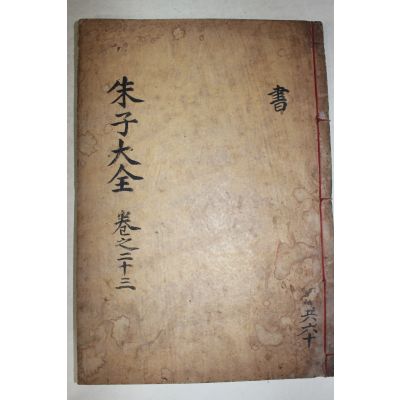 書
朱子大全 卷之二十三
共六十